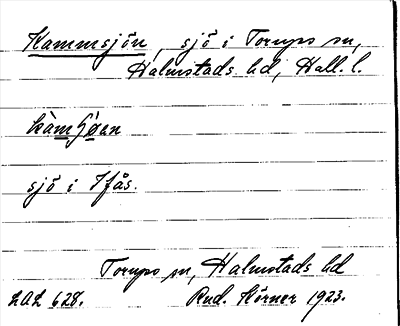 Kammsjön, sjö i Torups sn,
Halmstads hd, Hall. l.
sjö i Ifås.
Torups sn, Halmstads hd
LAL 628. Rud. Hörner 1923.